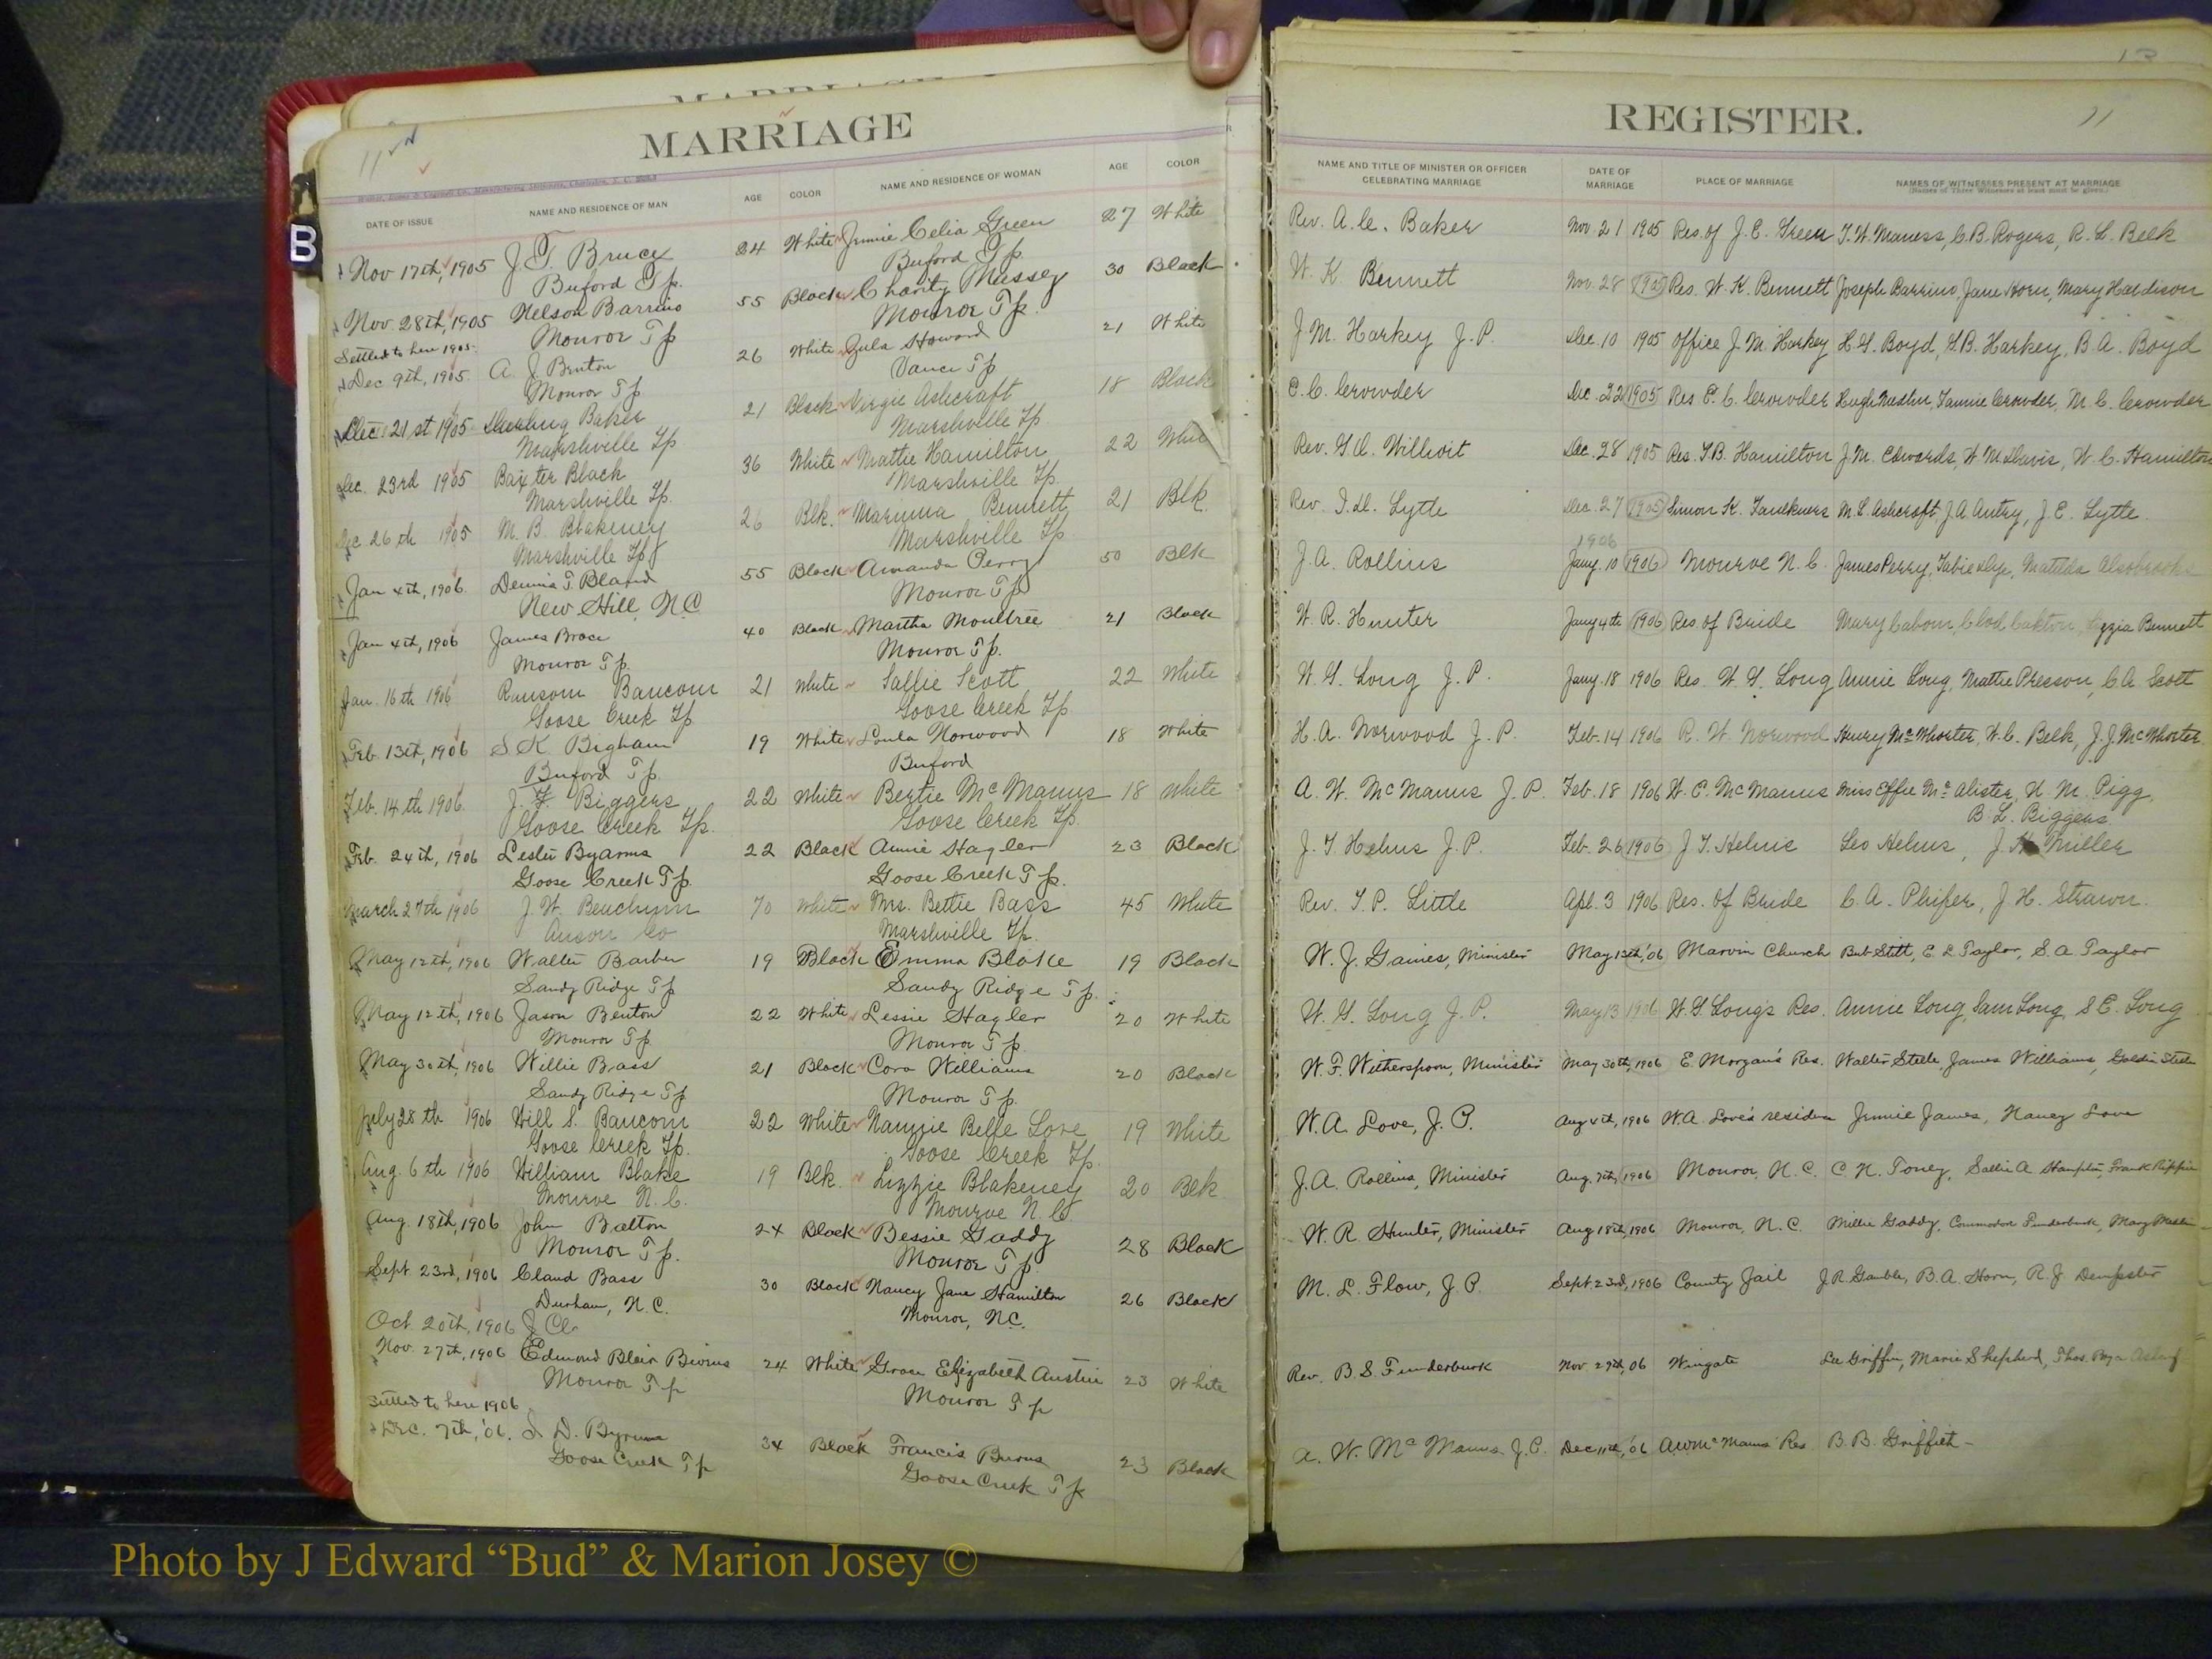 MARRIAGE
11
Nov 17th, 1905 J. T. Bruce 24 White Jennie Celia Green 27 White
Buford Tp. Buford Tp.
Nov. 28th, 1905 Nelson Barrino 55 Black Charity Massey 30 Black
Monroe Tp Monroe Tp.
Settled to here 1905.
Dec 9th, 1905 A. J. Benton 26 White Zula Howard 21 White
Monroe Tp. Vance Tp
Dec 21st 1905 Baker 21 Black Virgie Ashcraft 18 Black
Marshville Tp Marshville Tp
Dec. 23rd 1905 Baxter Black 36 White Mattie Hamilton 22 White
Marshville Tp. Marshville Tp.
Dec 26th 1905 M. B. Blakeney 26 Blk. Bennett 21 Blk.
Marshville Tp Marshville Tp
Jan 4th, 1906 Dennis T. Bland 55 Black Amanda Perry 50 Blk
New Hill, N.C Monroe Tp
Jan 4th, 1906 James Brace 40 Black Martha Moultree 21 Black
Monroe Tp. Monroe Tp.
Jan. 16th 1906 Ransom Baucom 21 White Sallie Scott 22 White
Goose Creek Tp Goose Creek Tp
Feb. 13th, 1906 S. K. Bigham 19 White Loula Norwood 18 White
Buford Tp. Buford
Feb. 14th 1906 J. F. Biggers 22 White Bertie McManus 18 White
Goose Creek Tp. Goose Creek Tp.
Feb. 24th, 1906 Lester Byarms 22 Black Annie Hagler 23 Black
Goose Creek Tp. Goose Creek Tp.
March 27th 1906 J. W. 70 White Mrs. Bettie Bass 45 White
Anson Co Marshville Tp.
May 12th, 1906 Walter Barber 19 Black Emma Blake 19 Black
Sandy Ridge Tp Sandy Ridge Tp.
May 12th, 1906 Jason Benton 22 White Lessie Hagler 20 White
Monroe Tp. Monroe Tp.
May 30th, 1906 Willie Bass 21 Black Cora Williams 20 Black
Sandy Ridge Tp Monroe Tp.
July 28th 1906 Will S. Baucom 22 White Nannie Belle Love 19 White
Goose Creek Tp. Goose Creek Tp.
Aug. 6th 1906 William Blake 19 Blk. Lizzie Blakeney 20 Blk
Monroe N.C. Monroe N.C.
Aug. 18th, 1906 John Belton 24 Black Bessie Gaddy 28 Black
Monroe Tp. Monroe Tp
Sept. 23rd, 1906 Claud Bass 30 Black Nancy Jane Hamilton 26 Black
Durham, N.C. Monroe, N.C.
Oct. 20th, 1906
Nov. 27th, 1906 Edmond Blair Bivens 24 White Grace Elizabeth Austin 23 White
Monroe Tp Monroe Tp
Settled to here 1906
Dec. 7th, '06. S. D. Byrum 34 Black Francis Burns 23 Black
Goose Creek Tp Goose Creek Tp
DATE OF ISSUE NAME AND RESIDENCE OF MAN AGE COLOR NAME AND RESIDENCE OF WOMAN AGE COLOR
B
REGISTER.
11
NAME AND TITLE OF MINISTER OR OFFICER CELEBRATING MARRIAGE DATE OF MARRIAGE PLACE OF MARRIAGE NAMES OF WITNESSES PRESENT AT MARRIAGE
(Names of Three Witnesses at least must be given.)
Rev. A. C. Baker Nov 21 1905 Res. of J. E. Green T. W. Maness, C. B. Rogers, R. L. Belk
W. K Bennett Nov. 28 1905 Res. W. K. Bennett Joseph Barrino, Jane Horn, Mary Hardison
J M. Harkey J. P. Dec. 10 1905 Office J. M. Harkey H. G. Boyd, G. B. Harkey, B. A. Boyd
E. C. Crowder Dec. 22 1905 Res E. C. Crowder Hugh Fannie Crowder, M. C. Crowder
Rev. Dec. 28 1905 Res. T. B. Hamilton J. M. Edwards, W M Davis, W. C. Hamilton
Rev. I. D. Lytle Dec. 27 1905 Simon K. Faulkners M. L. Ashcraft J. A. Autry, J. E. Lytle
1906
J. A. Rollins Jany. 10 1906 Monroe N. C. James Perry, Matilda Alsobrooks
W. R. Hunter Jany 4th 1906 Res. of Bride Mary Lizzia Bennett
W. G. Long J. P. Jany. 18 1906 Res. W. G. Long Annie Long, Mattie Presson, C A Scott
H. A. Norwood J. P. Feb. 14 1906 R. W. Norwood Henry McWhorter, W. C. Belk, J. J. McWhorter
A. W. McManus J. P. Feb. 18 1906 W. E. McManus Miss Effie McAlister, H. M. Pigg,
B. L. Biggers
J. T. Helms J. P. Feb. 26 1906 J T. Helms Leo Helms, Miller
Rev. T. P. Little Apl. 3 1906 Res. Of Bride C. A. Phifer, J. H. Strawn.
W. J. Gaines, Minister May 13th, '06 Marvin Church Bub Stitt, E. L. Taylor, S. A. Taylor
W. G. Long J. P. May 13 1906 W. G. Long's Res. Annie Long, Sam Long, S E. Long
W. F. Witherspoon, Minister May 30th, 1906 E. Morgan's Res. Walter Steele, James Williams, Goldie Steele
W. A. Love, J. P. Aug 4th, 1906 W. A. Love's Jennie James, Nancy Love
J. A. Rollins, Minister Aug. 7th, 1906 Monroe, N.C. C. N. Toney, Sallie A. Hampton, Frank
W. R. Hunter, Minister Aug 18th, 1906 Monroe, N.C. Millie Gaddy, Commodore Funderburk, Mary
M. L. Flow, J. P. Sept. 23rd, 1906 County Jail J. R. Gamble, B. A. Horn, R. J. Dempster
Rev. B. S. Funderburk Nov 29th, 06 Wingate Lee Griffin, Marie Shepherd, Thos.
A. W. McManus J. P. Dec 11th, '06 A W McManus' Res B. B. Griffith
Photo by J Edward “Bud” & Marion Josey ©